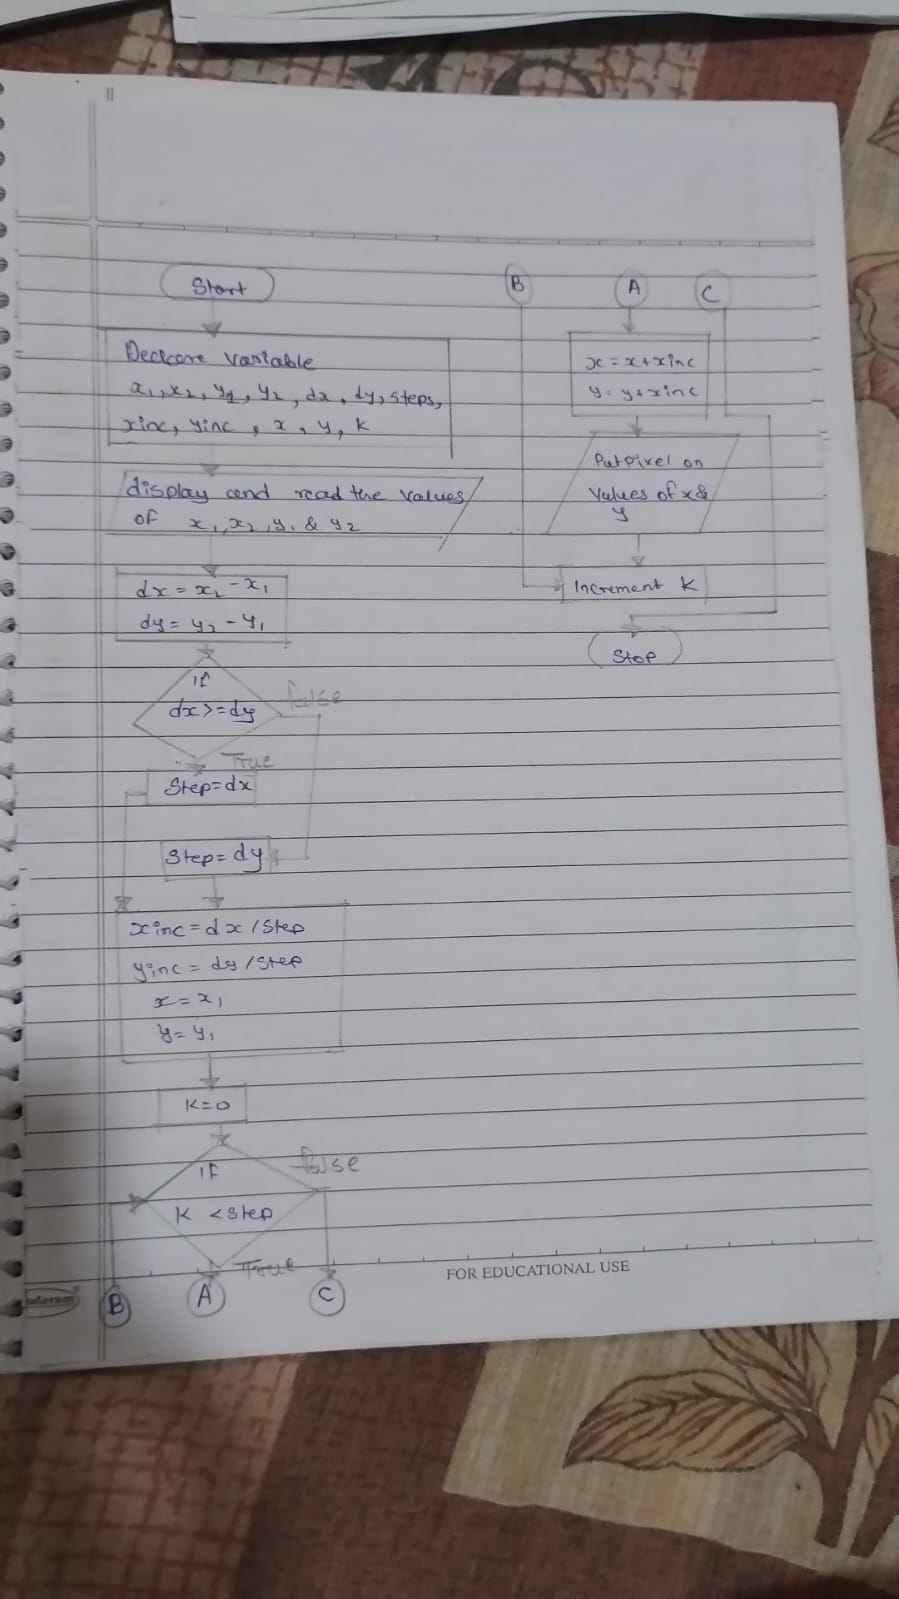 Start
Declare variable
x1, x2, y1, y2, dx, dy, steps,
xinc, yinc, x, y, k
display and read the values
of x1, x2, y1 & y2
dx = x2 - x1
dy = y2 - y1
If
dx >= dy
false
True
Step = dx
Step = dy
xinc = dx / Step
yinc = dy / Step
x = x1
y = y1
K = 0
IF
false
K < Step
True
B
A
C
B
A
C
x = x + xinc
y = y + xinc
Putpixel on
Values of x &
y
Increment K
Stop
FOR EDUCATIONAL USE